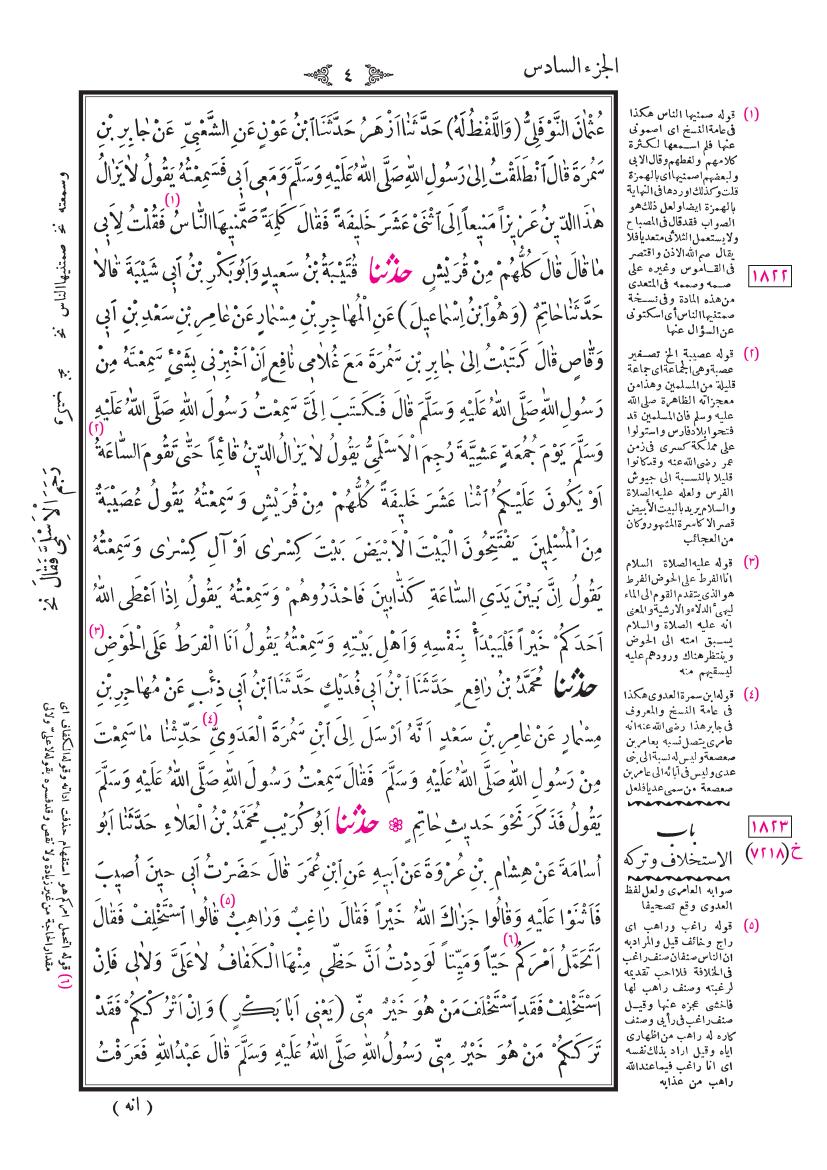 الجزء السادس
٤
عُثْمَانَ النَّوْفَلِىُّ (وَاللَّفْظُ لَهُ) حَدَّثَنَا اَزْهَرُ حَدَّثَنَا ابْنُ عَوْنٍ عَنِ الشَّعْبِىِّ عَنْ جَابِرِ بْنِ
سَمُرَةَ قَالَ انْطَلَقْتُ اِلىٰ رَسُولِ اللهِ صَلَّى اللهُ عَلَيْهِ وَسَلَّمَ وَمَعِى اَبِى فَسَمِعْتُهُ يَقُولُ لاَ يَزَالُ
هٰذَا الدِّينُ عَزِيزاً مَنِيعاً اِلَى اثْنَىْ عَشَرَ خَلِيفَةً فَقَالَ كَلِمَةً صَمَّنِيهَا النَّاسُ (١) فَقُلْتُ لِاَبِى
مَا قَالَ قَالَ كُلُّهُمْ مِنْ قُرَيْشٍ حدثنا قُتَيْبَةُ بْنُ سَعِيدٍ وَاَبُو بَكْرِ بْنُ اَبِى شَيْبَةَ قَالاَ
حَدَّثَنَا حَاتِمٌ (وَهُوَ ابْنُ اِسْمَاعِيلَ) عَنِ الْمُهَاجِرِ بْنِ مِسْمَارٍ عَنْ عَامِرِ بْنِ سَعْدِ بْنِ اَبِى
وَقَّاصٍ قَالَ كَتَبْتُ اِلىٰ جَابِرِ بْنِ سَمُرَةَ مَعَ غُلاَمِى نَافِعٍ اَنْ اَخْبِرْنِى بِشَىْءٍ سَمِعْتَهُ مِنْ
رَسُولِ اللهِ صَلَّى اللهُ عَلَيْهِ وَسَلَّمَ قَالَ فَكَتَبَ اِلَىَّ سَمِعْتُ رَسُولَ اللهِ صَلَّى اللهُ عَلَيْهِ
وَسَلَّمَ يَوْمَ جُمُعَةٍ عَشِيَّةَ رُجِمَ الْاَسْلَمِىُّ يَقُولُ لاَ يَزَالُ الدِّينُ قَائِماً حَتّٰى تَقُومَ السَّاعَةُ (٢)
اَوْ يَكُونَ عَلَيْكُمُ اثْنَا عَشَرَ خَلِيفَةً كُلُّهُمْ مِنْ قُرَيْشٍ وَسَمِعْتُهُ يَقُولُ عُصَيْبَةٌ
مِنَ الْمُسْلِمِينَ يَفْتَتِحُونَ الْبَيْتَ الْاَبْيَضَ بَيْتَ كِسْرٰى اَوْ آلِ كِسْرٰى وَسَمِعْتُهُ
يَقُولُ اِنَّ بَيْنَ يَدَىِ السَّاعَةِ كَذَّابِينَ فَاحْذَرُوهُمْ وَسَمِعْتُهُ يَقُولُ اِذَا اَعْطَى اللهُ
اَحَدَكُمْ خَيْراً فَلْيَبْدَأْ بِنَفْسِهِ وَاَهْلِ بَيْتِهِ وَسَمِعْتُهُ يَقُولُ اَنَا الْفَرَطُ عَلَى الْحَوْضِ (٣)
حدثنا مُحَمَّدُ بْنُ رَافِعٍ حَدَّثَنَا ابْنُ اَبِى فُدَيْكٍ حَدَّثَنَا ابْنُ اَبِى ذِئْبٍ عَنْ مُهَاجِرِ بْنِ
مِسْمَارٍ عَنْ عَامِرِ بْنِ سَعْدٍ اَنَّهُ اَرْسَلَ اِلَى ابْنِ سَمُرَةَ الْعَدَوِىِّ (٤) حَدِّثْنَا مَا سَمِعْتَ
مِنْ رَسُولِ اللهِ صَلَّى اللهُ عَلَيْهِ وَسَلَّمَ فَقَالَ سَمِعْتُ رَسُولَ اللهِ صَلَّى اللهُ عَلَيْهِ وَسَلَّمَ
يَقُولُ فَذَكَرَ نَحْوَ حَدِيثِ حَاتِمٍ حدثنا اَبُو كُرَيْبٍ مُحَمَّدُ بْنُ الْعَلاَءِ حَدَّثَنَا اَبُو
اُسَامَةَ عَنْ هِشَامِ بْنِ عُرْوَةَ عَنْ اَبِيهِ عَنِ ابْنِ عُمَرَ قَالَ حَضَرْتُ اَبِى حِينَ اُصِيبَ
فَاَثْنَوْا عَلَيْهِ وَقَالُوا جَزَاكَ اللهُ خَيْراً فَقَالَ رَاغِبٌ وَرَاهِبٌ (٥) قَالُوا اسْتَخْلِفْ فَقَالَ
اَتَحَمَّلُ اَمْرَكُمْ حَيّاً وَمَيِّتاً (٦) لَوَدِدْتُ اَنَّ حَظِّى مِنْهَا الْكَفَافُ لاَ عَلَىَّ وَلاَ لِى فَاِنْ
اَسْتَخْلِفْ فَقَدِ اسْتَخْلَفَ مَنْ هُوَ خَيْرٌ مِنِّى (يَعْنِى اَبَا بَكْرٍ) وَاِنْ اَتْرُكْكُمْ فَقَدْ
تَرَكَكُمْ مَنْ هُوَ خَيْرٌ مِنِّى رَسُولُ اللهِ صَلَّى اللهُ عَلَيْهِ وَسَلَّمَ قَالَ عَبْدُ اللهِ فَعَرَفْتُ
( انه )
(١) قوله صمنيها الناس هكذا
فى عامة النسخ اى اصمونى
عنها فلم اسمعها لكثرة
كلامهم ولغطهم وقال الابى
ولبعضهم اصمنيها اى بالهمزة
قلت وكذلك اوردها فى النهاية
بالهمزة ايضا ولعل ذلك هو
الصواب فقد قال فى المصباح
ولا يستعمل الثلاثى متعديا فلا
يقال صم الله الاذن واقتصر
فى القاموس وغيره على
صمه وصممه فى المتعدى
من هذه المادة وفى نسخة
صمتنيها الناس أى اسكتونى
عن السؤال عنها
١٨٢٢
(٢) قوله عصيبة الخ تصغير
عصبة وهى الجماعة اى جماعة
قليلة من المسلمين وهذا من
معجزاته الظاهرة صلى الله
عليه وسلم فان المسلمين قد
فتحوا بلاد فارس واستولوا
على مملكة كسرى فى زمن
عمر رضى الله عنه وقد كانوا
قليلا بالنسبة الى جيوش
الفرس ولعله عليه الصلاة
والسلام يريد بالبيت الأبيض
قصر الاكاسرة المشهور وكان
من العجائب
(٣) قوله عليه الصلاة السلام
انا الفرط على الحوض الفرط
هو الذى يتقدم القوم الى الماء
ليهئ الدلاء والارشية والمعنى
انه عليه الصلاة والسلام
يسبق امته الى الحوض
وينتظر هناك ورودهم عليه
ليسقيهم منه
(٤) قوله ابن سمرة العدوى هكذا
فى عامة النسخ والمعروف
فى جابر هذا رضى الله عنه انه
عامرى يتصل نسبه بعامر بن
صعصعة وليس له نسبة الى بنى
عدى وليس فى آبائه الى عامر بن
صعصعة من سمى عديا فلعل
١٨٢٣
خ (٧٢١٨)
باب
الاستخلاف وتركه
صوابه العامرى ولعل لفظ
العدوى وقع تصحيفا
(٥) قوله راغب وراهب اى
راج وخائف قيل والمراد به
ان الناس صنفان صنف راغب
فى الخلافة فلا احب تقديمه
لرغبته وصنف راهب لها
فاخشى عجزه عنها وقيل
صنف راغب فى رأيى وصنف
كاره له راهب من اظهارى
اياه وقيل اراد بذلك نفسه
اى انا راغب فيما عند الله
راهب من عذابه
وسمعته نخ صمتنيها الناس نخ
نخ وكتب
رَجْمِ الْاَسْلَمِىِّ فَقَالَ نخ
(٦) قوله اتحمل امركم هو استفهام حذفت اداته وقوله الكفاف اى
مقدار الحاجة من غير زيادة ولا نقص وقد فسره بقوله لا علىّ ولا لى